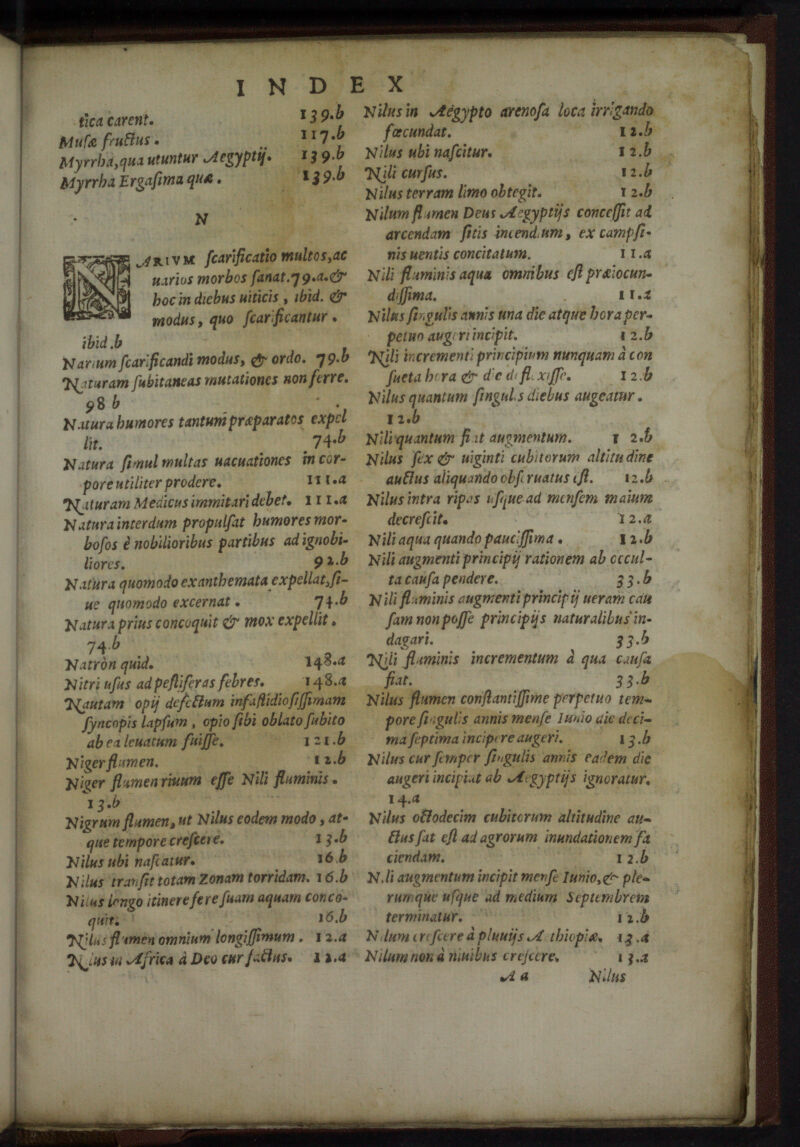 INDEX
tica carent. 139.b
Musæ fructus. 117.b
Myrrha,qua utuntur Aegyptij. 139.b
Myrrha Ergasima quæ. 139.b
N
NARIVM scarificatio multos,ac
uarios morbos sanat.79.a.&
hoc in diebus uiticis, ibid. &
modus, quo scarificantur.
ibid.b
Narium scarificandi modus, & ordo. 79.b
Naturam subitaneas mutationes non ferre.
98 b
Natura humores tantum præparatos expel
lit. 74.b
Natura simul multas uacuationes in cor-
pore utiliter prodere. 111.a
Naturam Medicus immitari debet. 111.a
Natura interdum propulsat humores mor-
bosos è nobilioribus partibus ad ignobi-
liores. 92.b
Natura quomodo exanthemata expellat,si-
ue quomodo excernat. 74.b
Natura prius concoquit & mox expellit.
74.b
Natròn quid. 148.a
Nitri usus ad pestiferas febres. 148.a
Nautam opij defectum infastidiosissimam
syncopis lapsum, opio sibi oblato subito
ab ea leuatum fuisse. 121.b
Niger flumen. 12.b
Niger flumen riuum esse Nili fluminis.
13.b
Nigrum flumen, ut Nilus eodem modo, at-
que tempore crescere. 13.b
Nilus ubi nascatur. 16 b
Nilus transit totam Zonam torridam. 16.b
Nilus longo itinere fere suam aquam conco-
quit. 16.b
Nilus flumen omnium longissimum. 12.a
Nilus in Africa à Deo cur factus. 12.a
Nilus in Aegypto arenosa loca irrigando
fœcundat. 12.b
Nilus ubi nascitur. 12.b
Nili cursus. 12.b
Nilus terram limo obtegit. 12.b
Nilum flumen Deus Aegyptijs concessit ad
arcendam sitis incendium, ex campsi-
nis uentis concitatum. 11.a
Nili fluminis aqua omnibus est præiocun-
dissima. 11.a
Nilus singulis annis una die atque hora per-
petuo augeri incipit. 12.b
Nili incrementi principium nunquam à con
sueta hora & die deflexisse. 12.b
Nilus quantum singulis diebus augeatur.
12.b
Nili quantum fiat augmentum. 12.b
Nilus sex & uiginti cubitorum altitudine
auctus aliquando obseruatus est. 12.b
Nilus intra ripas usque ad mensem maium
decrescit. 12.a
Nili aqua quando paucissima. 12.b
Nili augmenti principij rationem ab occul-
ta causa pendere. 33.b
Nili fluminis augmenti principij ueram cau
sam non posse principijs naturalibus in-
dagari. 33.b
Nili fluminis incrementum à qua causa
fiat. 33.b
Nilus flumen constantissime perpetuo tem-
pore singulis annis mense Iunio die deci-
ma septima incipere augeri. 13.b
Nilus cur semper singulis annis eadem die
augeri incipiat ab Aegyptijs ignoratur.
14.a
Nilus octodecim cubitorum altitudine au-
ctus sat est ad agrorum inundationem fa
ciendam. 12.b
Nili augmentum incipit mense Iunio,& ple-
rumque usque ad medium Septembrem
terminatur. 12.b
Nilum crescere à pluuijs Aethiopiæ. 13.a
Nilum non à niuibus crescere. 13.a
A a Nilus